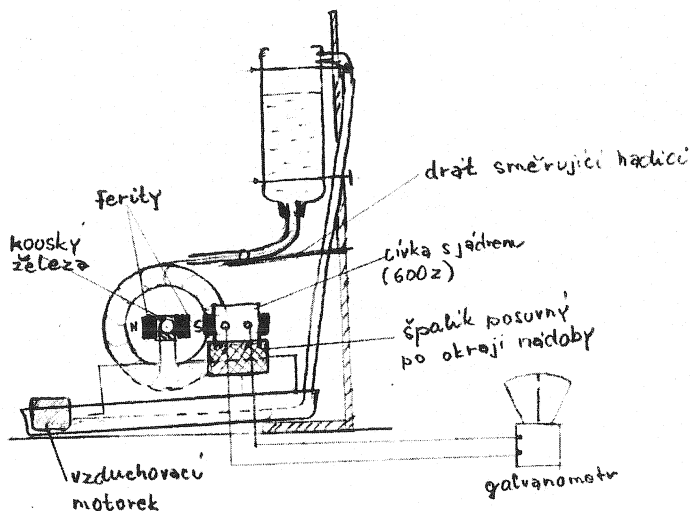 drát směrující hadici
Ferity
kousky
železa
cívka s jádrem
(600z)
N
S
špalík posuvný
po okraji nádoby
vzduchovací
motorek
galvanometr